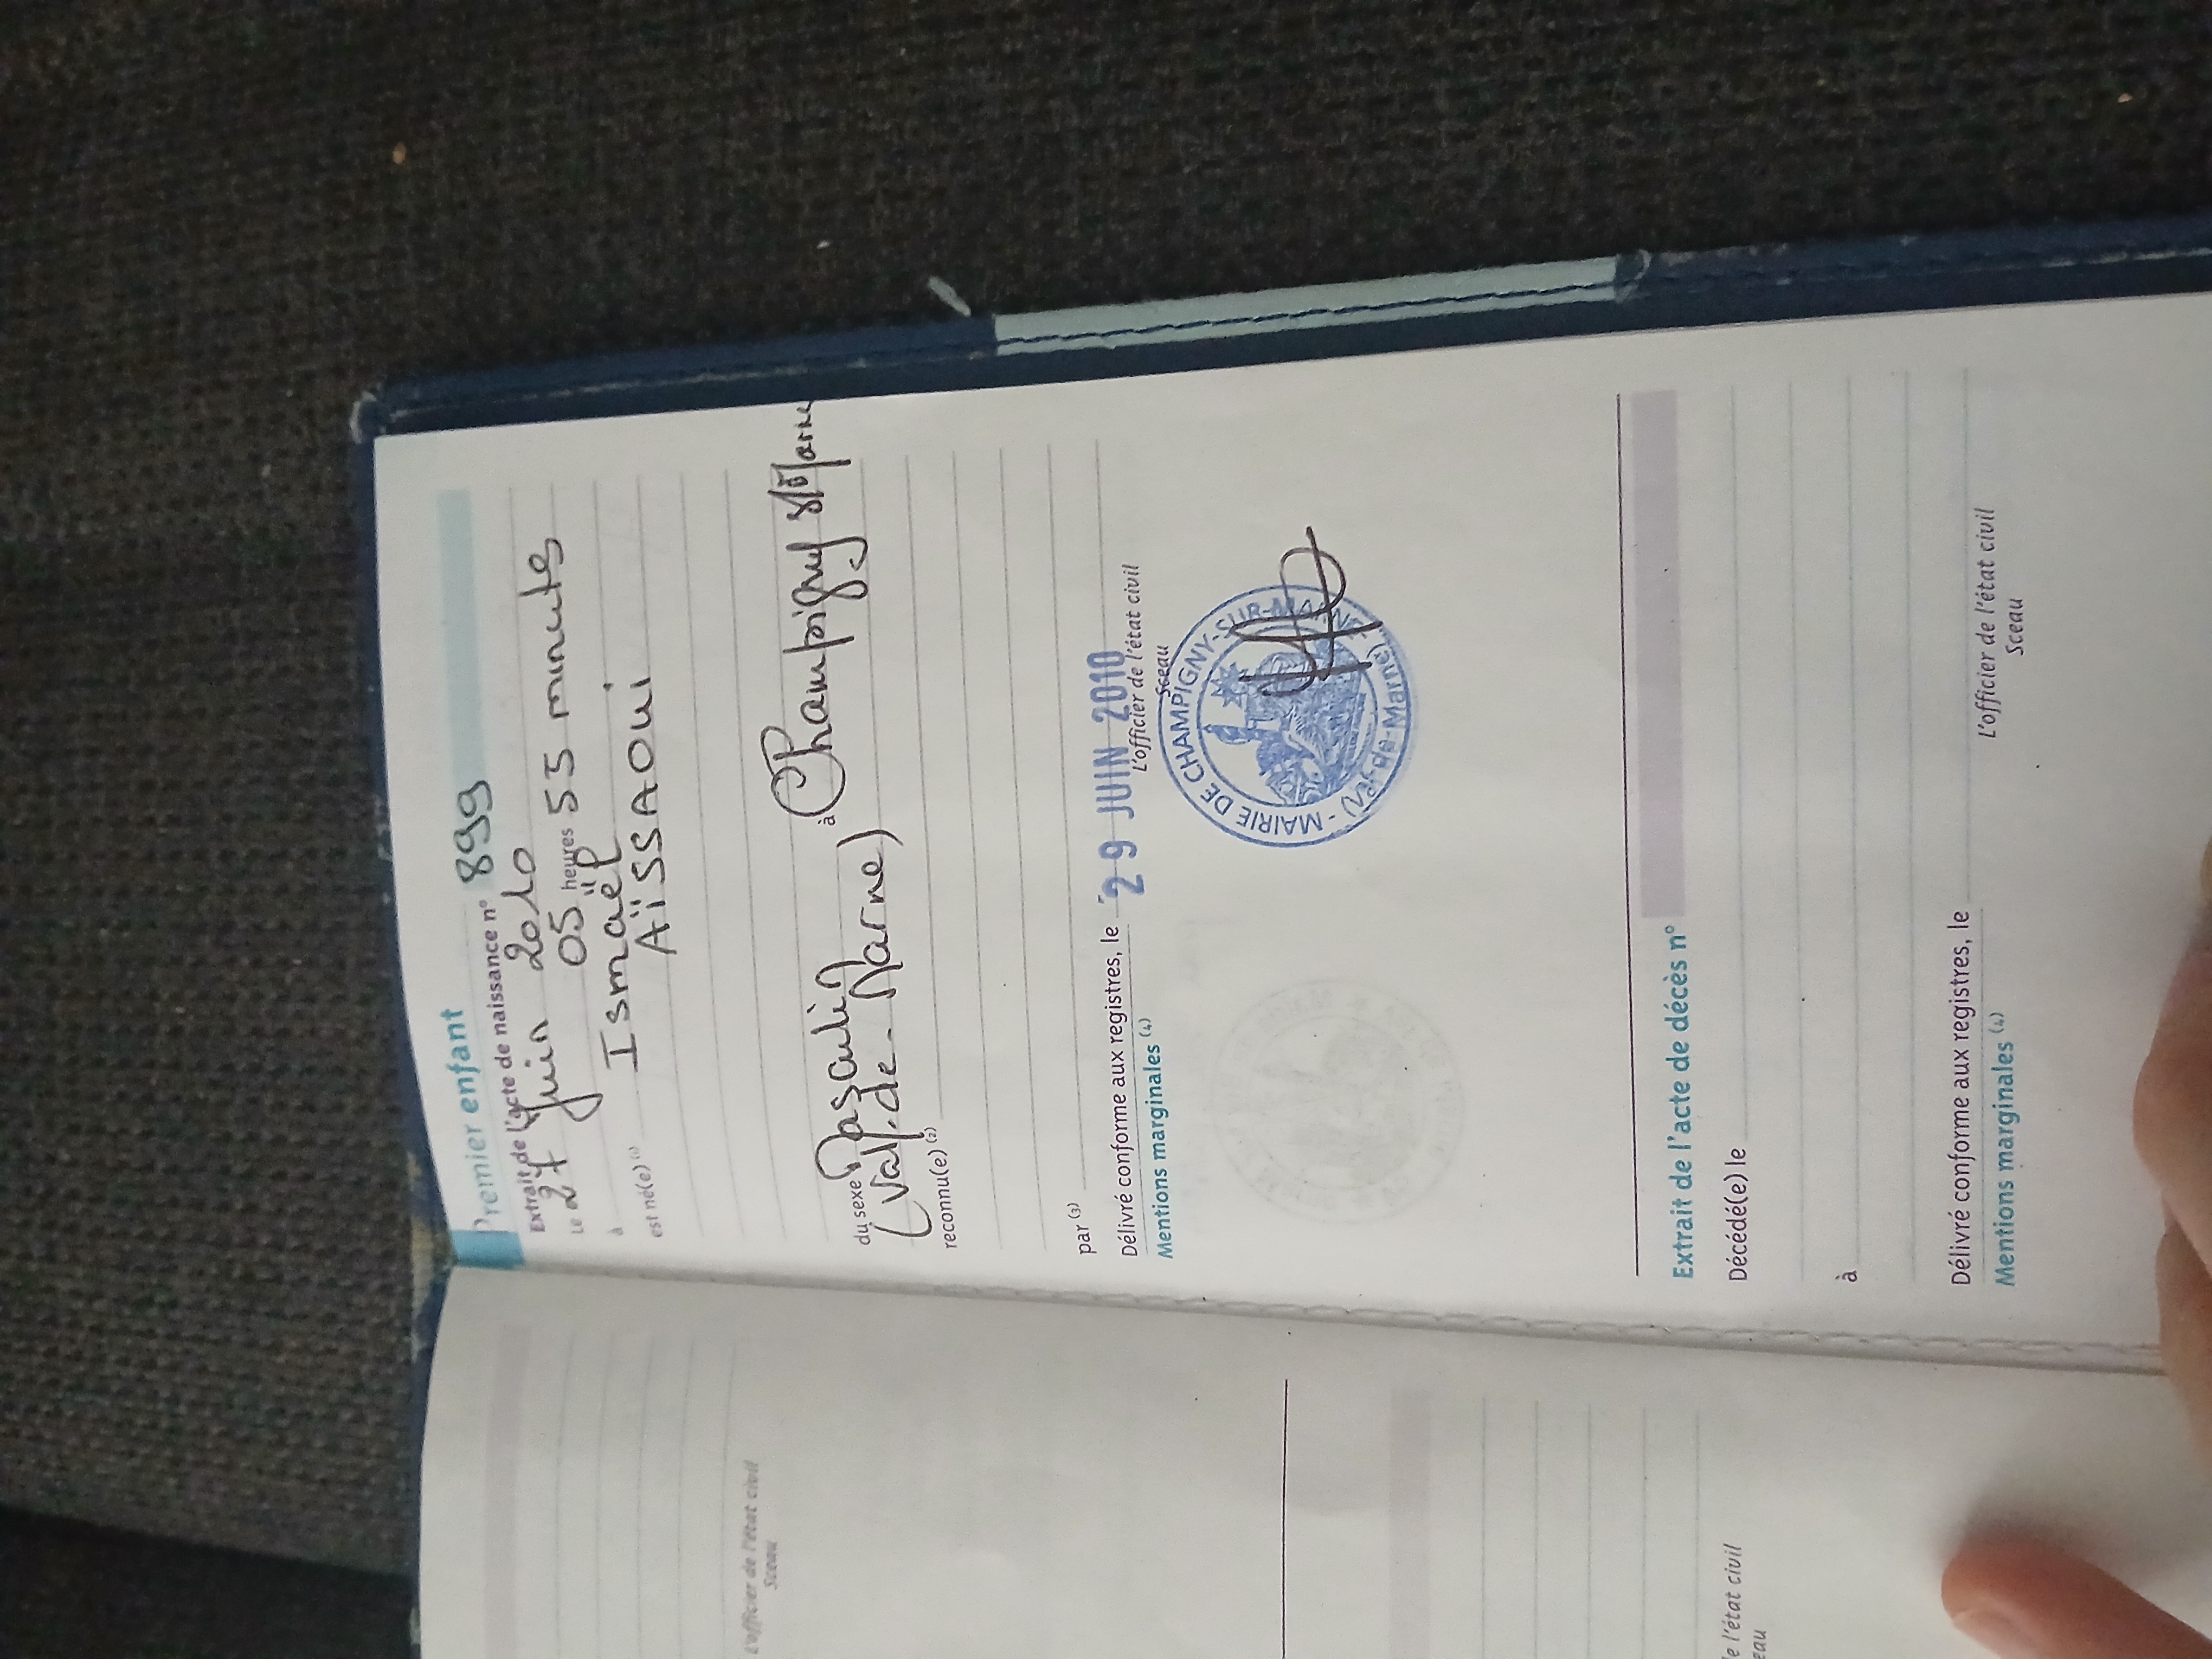 Premier enfant
Extrait de l'acte de naissance n° 899
Le 27 Juin 2010
à 05 heures 55 minutes
est né(e) (1) Ismaël
AÏSSAOUI
du sexe Masculin à Champigny s/ Marne
(Val-de-Marne)
reconnu(e) (2)
par (3)
Délivré conforme aux registres, le 29 JUIN 2010
Mentions marginales (4)
L'officier de l'état civil
Sceau
- MAIRIE DE CHAMPIGNY-SUR-MARNE - (Val-de-Marne)
Extrait de l'acte de décès n°
Décédé(e) le
à
Délivré conforme aux registres, le
Mentions marginales (4)
L'officier de l'état civil
Sceau
L'officier de l'état civil
Sceau
e l'état civil
eau